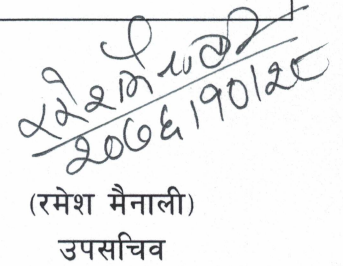 रमेश मैनाली
२०७६।१०।२८
(रमेश मैनाली)
उपसचिव